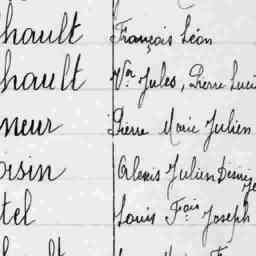 hault François Léon
hault Vor Jules, Pierre Luci
neur Pierre Marie Julien
oisin Alexis Julien Désiré
tel Louis Fçois Joseph